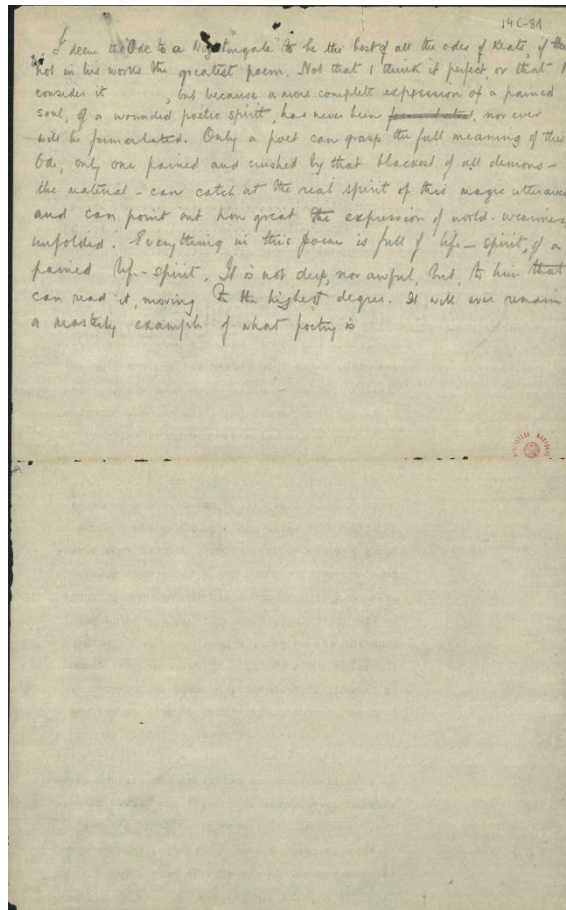 14C-81
I deem the "Ode to a Nightingale" to be the best of all the odes of Keats, if
not in his works the greatest poem. Not that I think it perfect or that I
consider it , but because a more complete expression of a pained
soul, of a wounded poetic spirit, has never been formulated, nor ever
will be formulated. Only a poet can grasp the full meaning of this
Ode, only one pained and crushed by that blackest of all demons -
the material - can catch at the real spirit of this magic utterance
and can point out how great the expression of world-weariness
unfolded. Everything in this poem is full of life-spirit, of a
pained life-spirit. It is not deep, nor awful, but, to him that
can read it, moving in the highest degree. It will ever remain
a masterly example of what poetry is